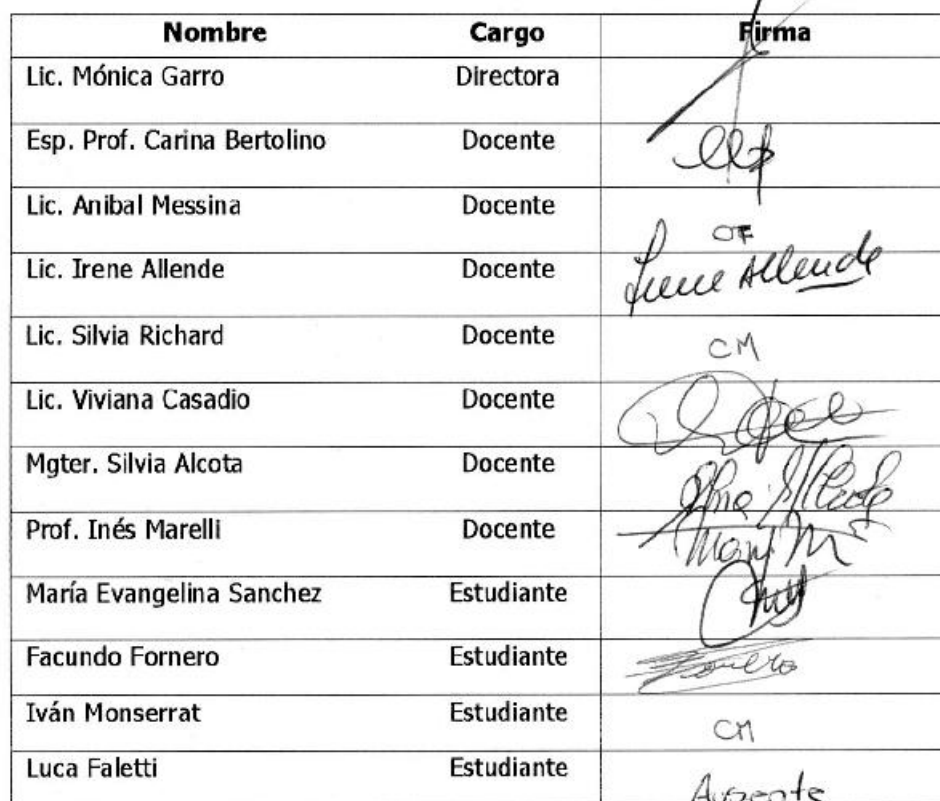 Nombre Cargo Firma
Lic. Mónica Garro Directora
Esp. Prof. Carina Bertolino Docente
Lic. Anibal Messina Docente OF
Lic. Irene Allende Docente Irene Allende
Lic. Silvia Richard Docente CM
Lic. Viviana Casadio Docente
Mgter. Silvia Alcota Docente
Prof. Inés Marelli Docente
María Evangelina Sanchez Estudiante
Facundo Fornero Estudiante
Iván Monserrat Estudiante CM
Luca Faletti Estudiante Ausente